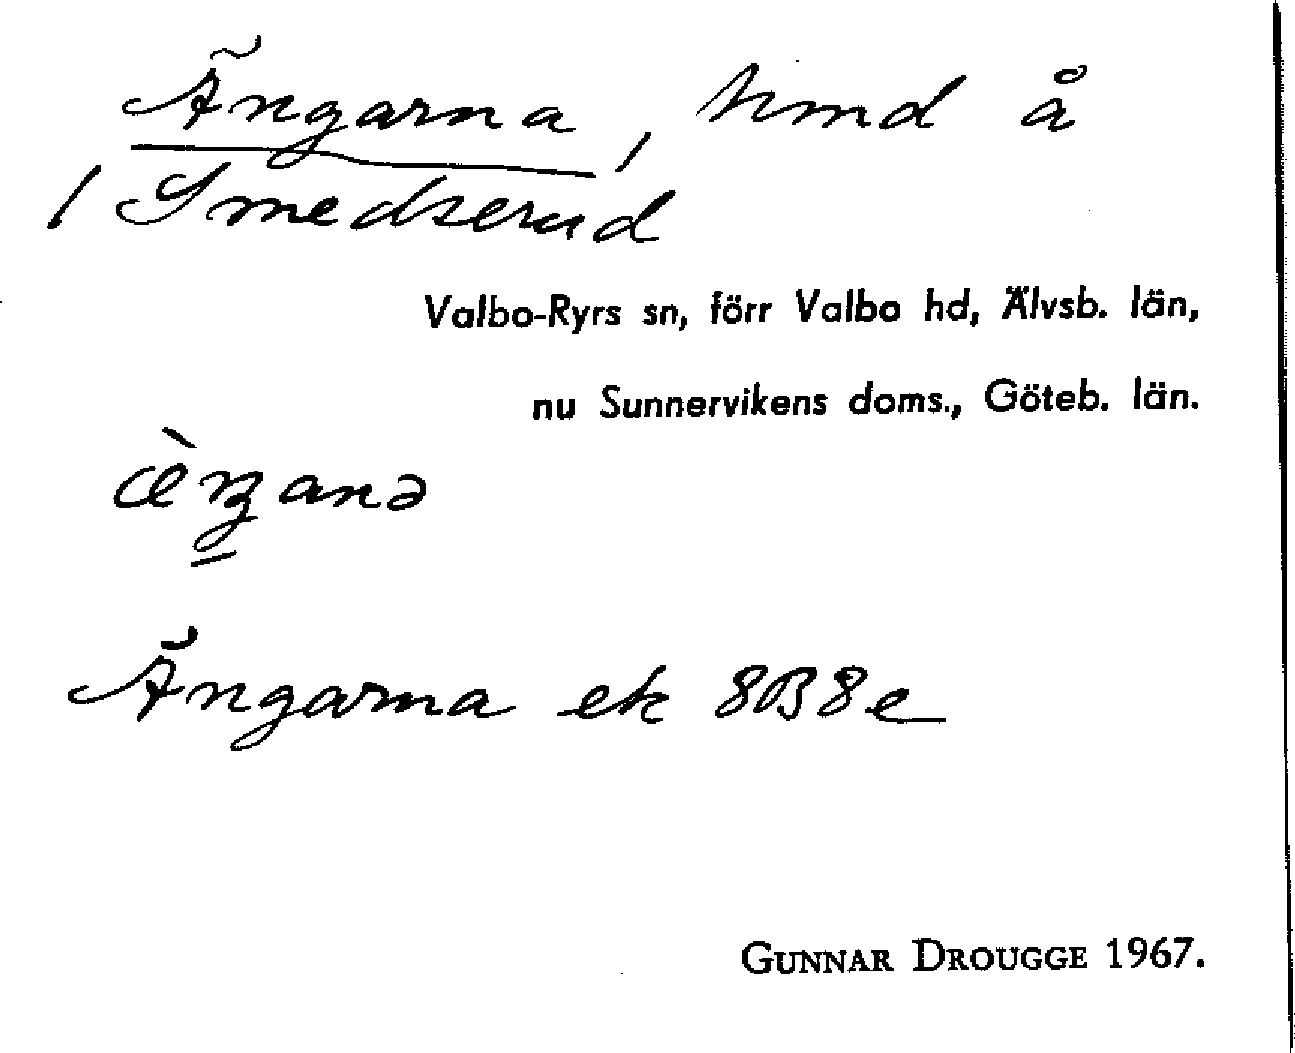 Ängarna, hmd å
/ Smedserud
Valbo-Ryrs sn, förr Valbo hd, Älvsb. län,
nu Sunnervikens doms., Göteb. län.
æ̀ŋanə
Ängarna ek 8B8e
GUNNAR DROUGGE 1967.